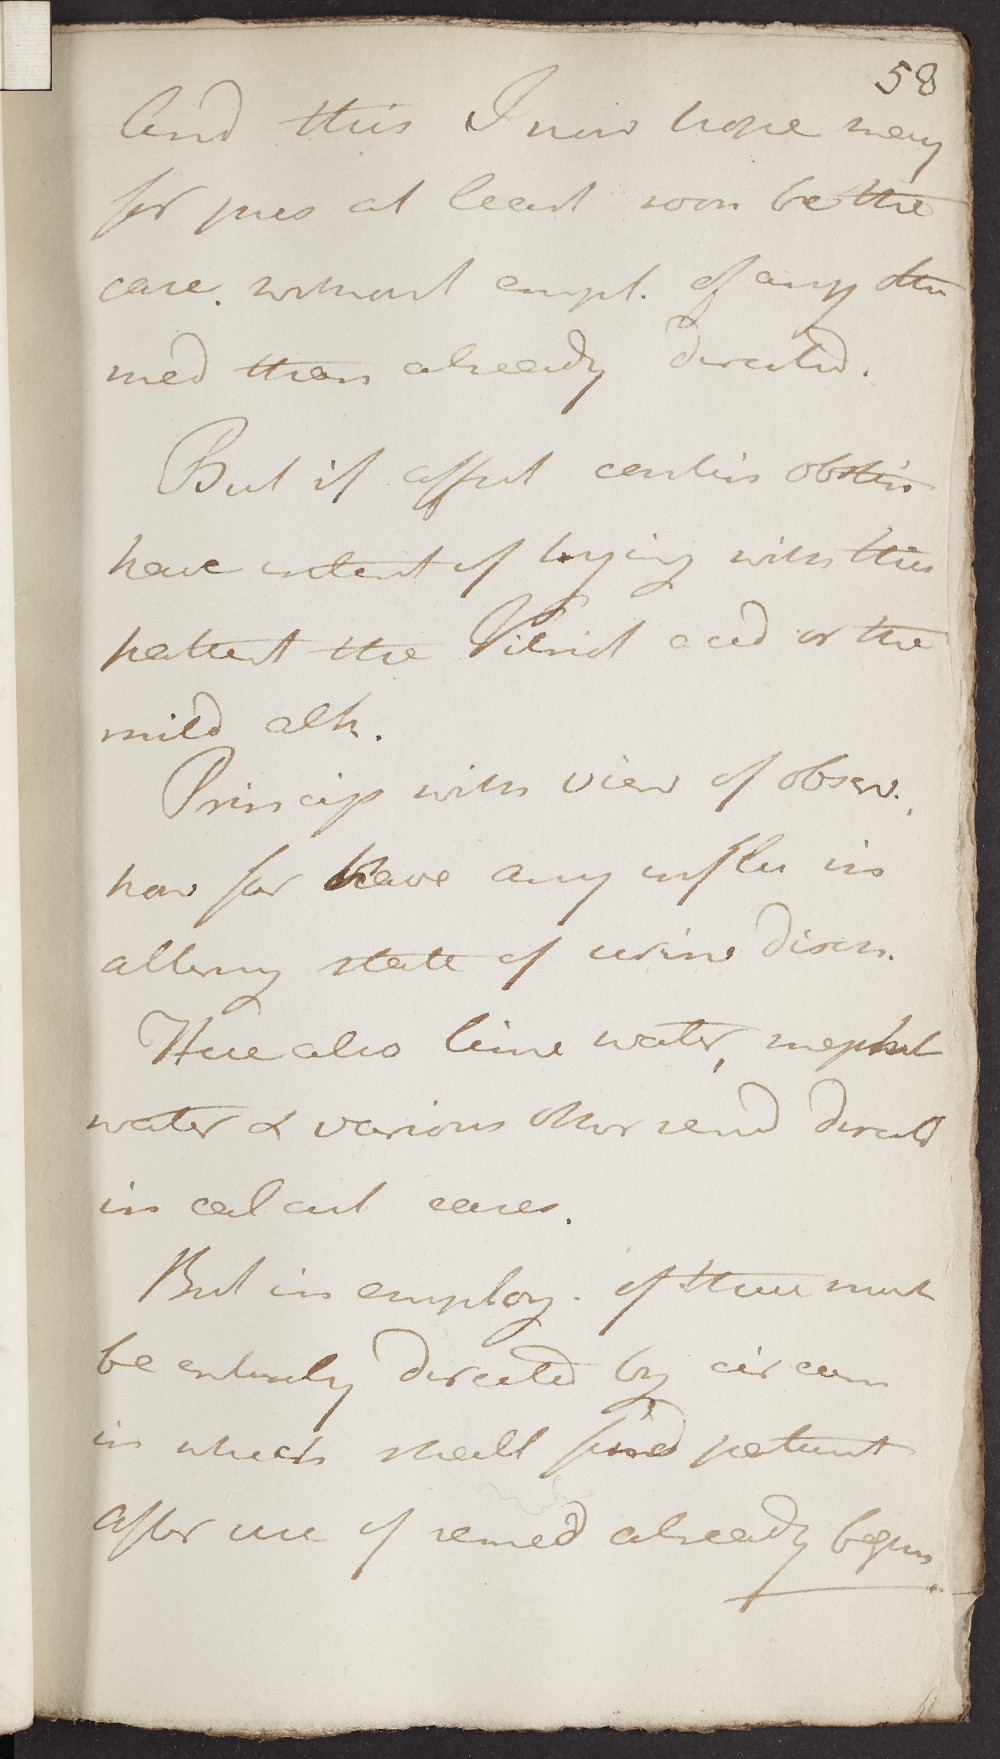 58
And this I now hope may
for pres at least soon be the
case. without empl. of any othr
med than already directed.
But if affect contin obstin
have intent of trying with this
patient the Vitriol acid or the
mild alk.
Princip with view of observ.
how far have any influ in
altering state of urine disch.
Here also lime water, mephit
water & various other remd directd
in calcul cases.
But in employ. of these must
be entirely directed by circum
in which shall find patient
after use of remed already begun.